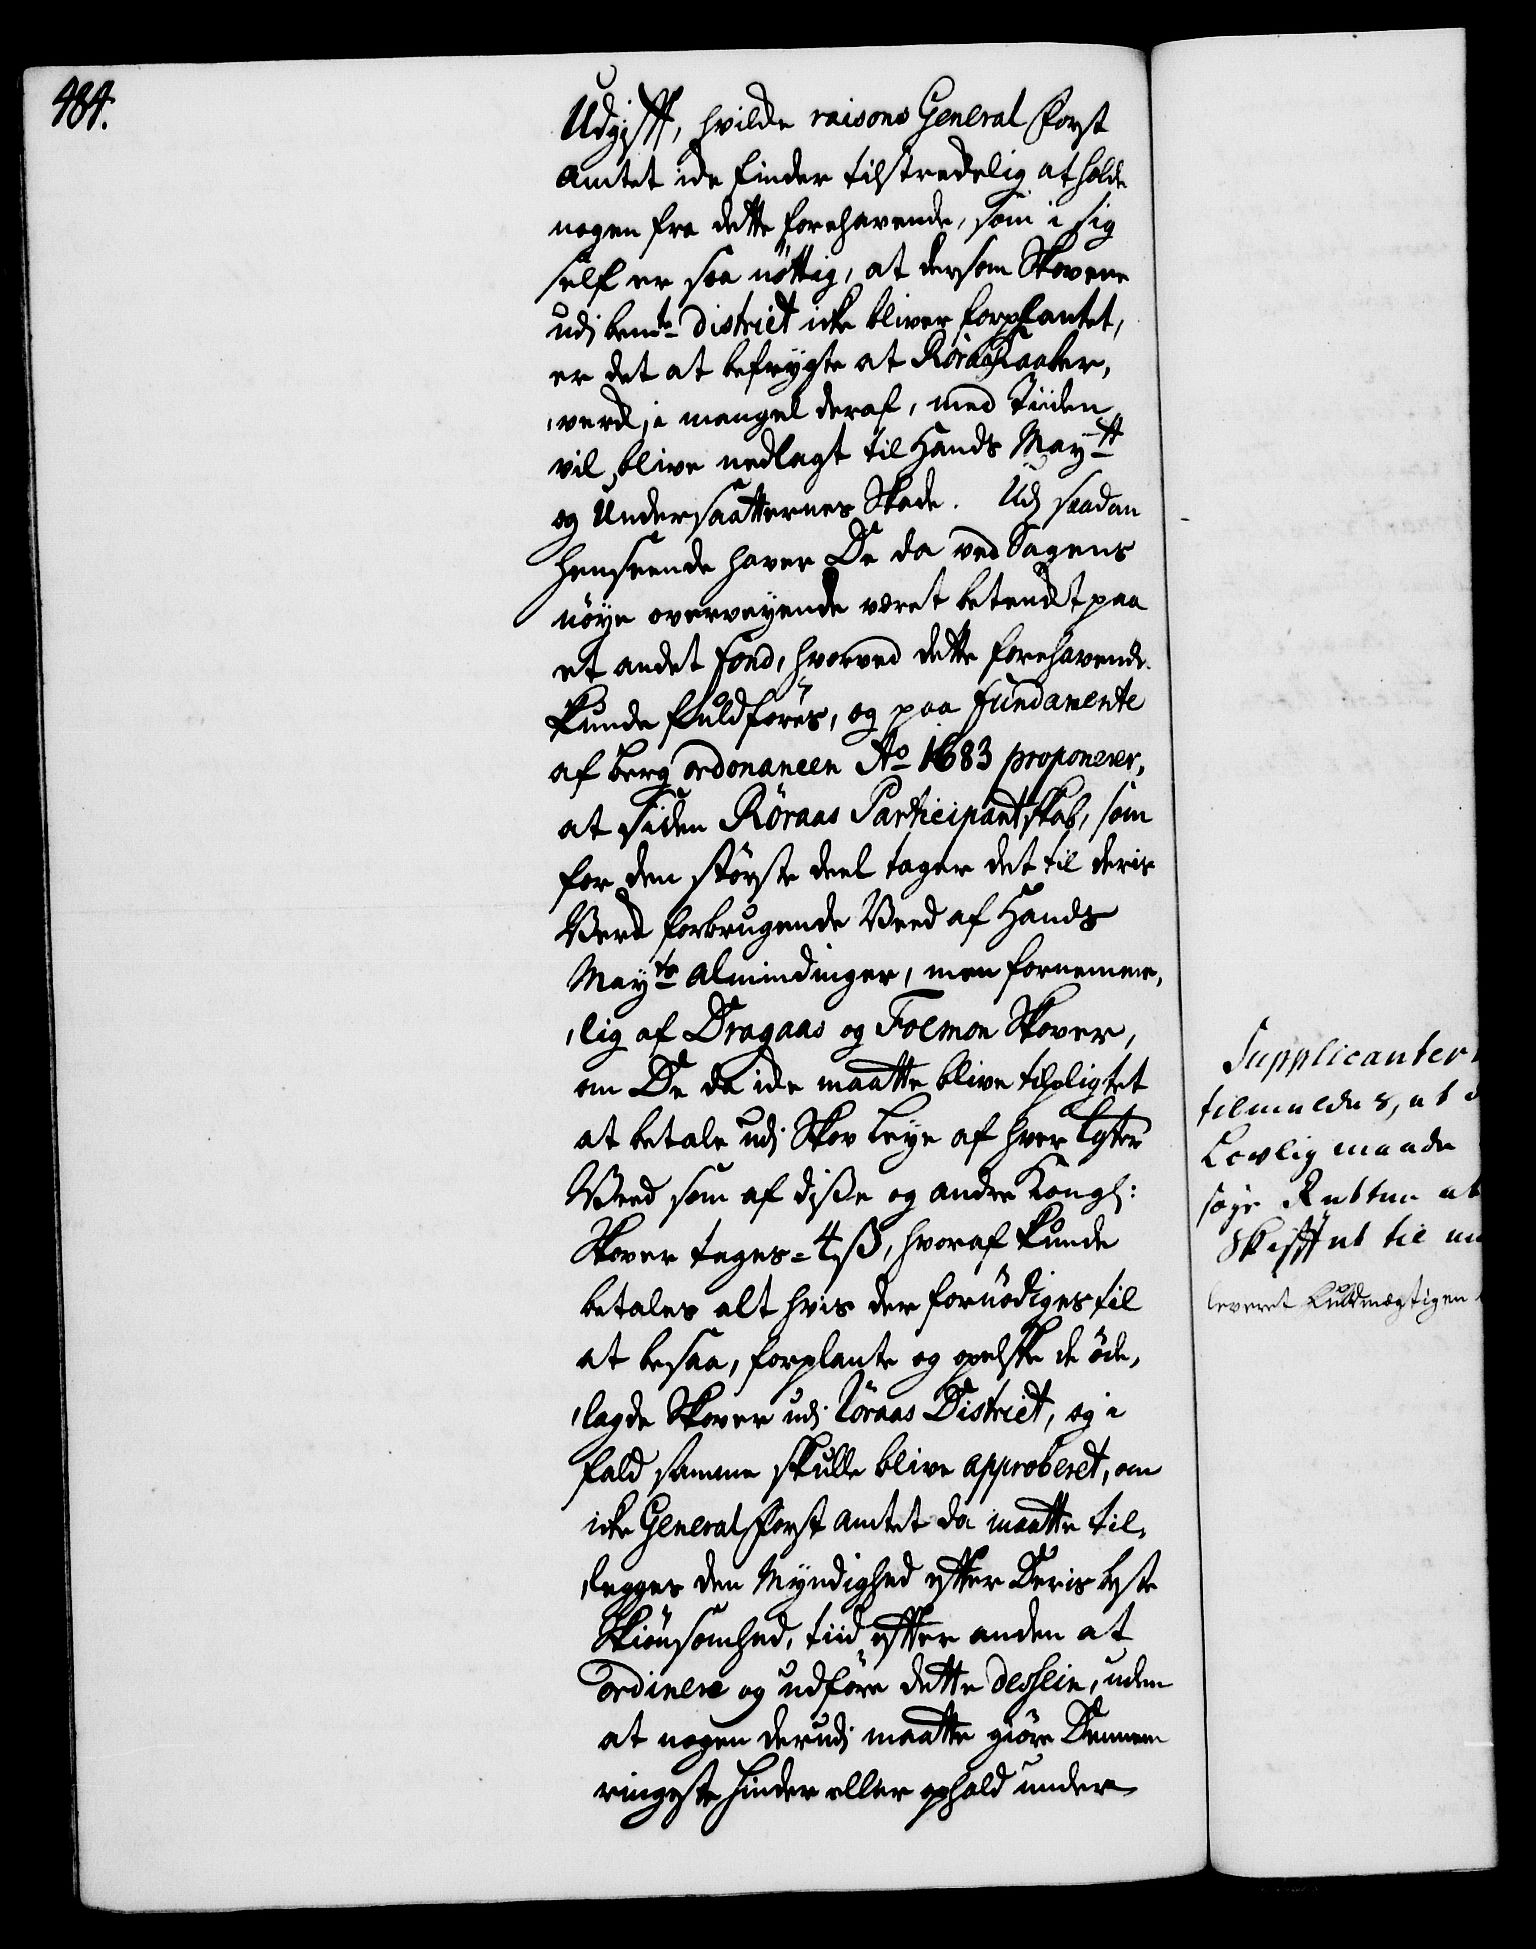 484.
Udgifft, hvilcke raisons General Forst
Amtet icke finder tilstreckelig at holde
nogen fra dette forehavende, som i sig
self er saa nöttig, at dersom Skovene
udj bemte district icke bliver forplantet,
er det at befrygte at Röraas Kaaber,
,verck, i mangel deraf, med Tiiden
vil blive nedlagt til Hands Maytt
og Undersaatternes Skade. Udj saadan
henseende haver De da ved Sagens
nöye overveyende været betenckt paa
et andet Fond, hvorved dette forehavende
kunde fuldföres, og paa fundamente
af Berg ordonancen Ao 1683 proponerer,
at siden Röraas Participantskab, som
for den störste deel tager det til deris
Verck forbrugende Veed af Hands
Mayts Almindinger, men fornemme,
,lig af Dragaas og Folmon Skover,
om De da icke maatte blive tilpligtet
at betale udj Skov Leye af hver Lgter
Veed som af disse og andre Kongl:
Skover tages = 4 ß, hvoraf kunde
betales alt hvis der fornödiges til
at besaa, forplante og opelske de öde,
,lagde Skover udj Röraas District, og i
fald samme skulle blive approberet, om
icke General Forst Amtet da maatte til,
,legges den Myndighed effter Deris beste
Skiönsomhed, tiid effter anden at
ordinere og udföre dette dessein, uden
at nogen derudj maatte giöre Dennem
ringeste hinder eller ophold under
Supplicanter
tilmeldes, at
Lovlig maade
söge Retten
Skifftet til
leveret Fuldmægtigen